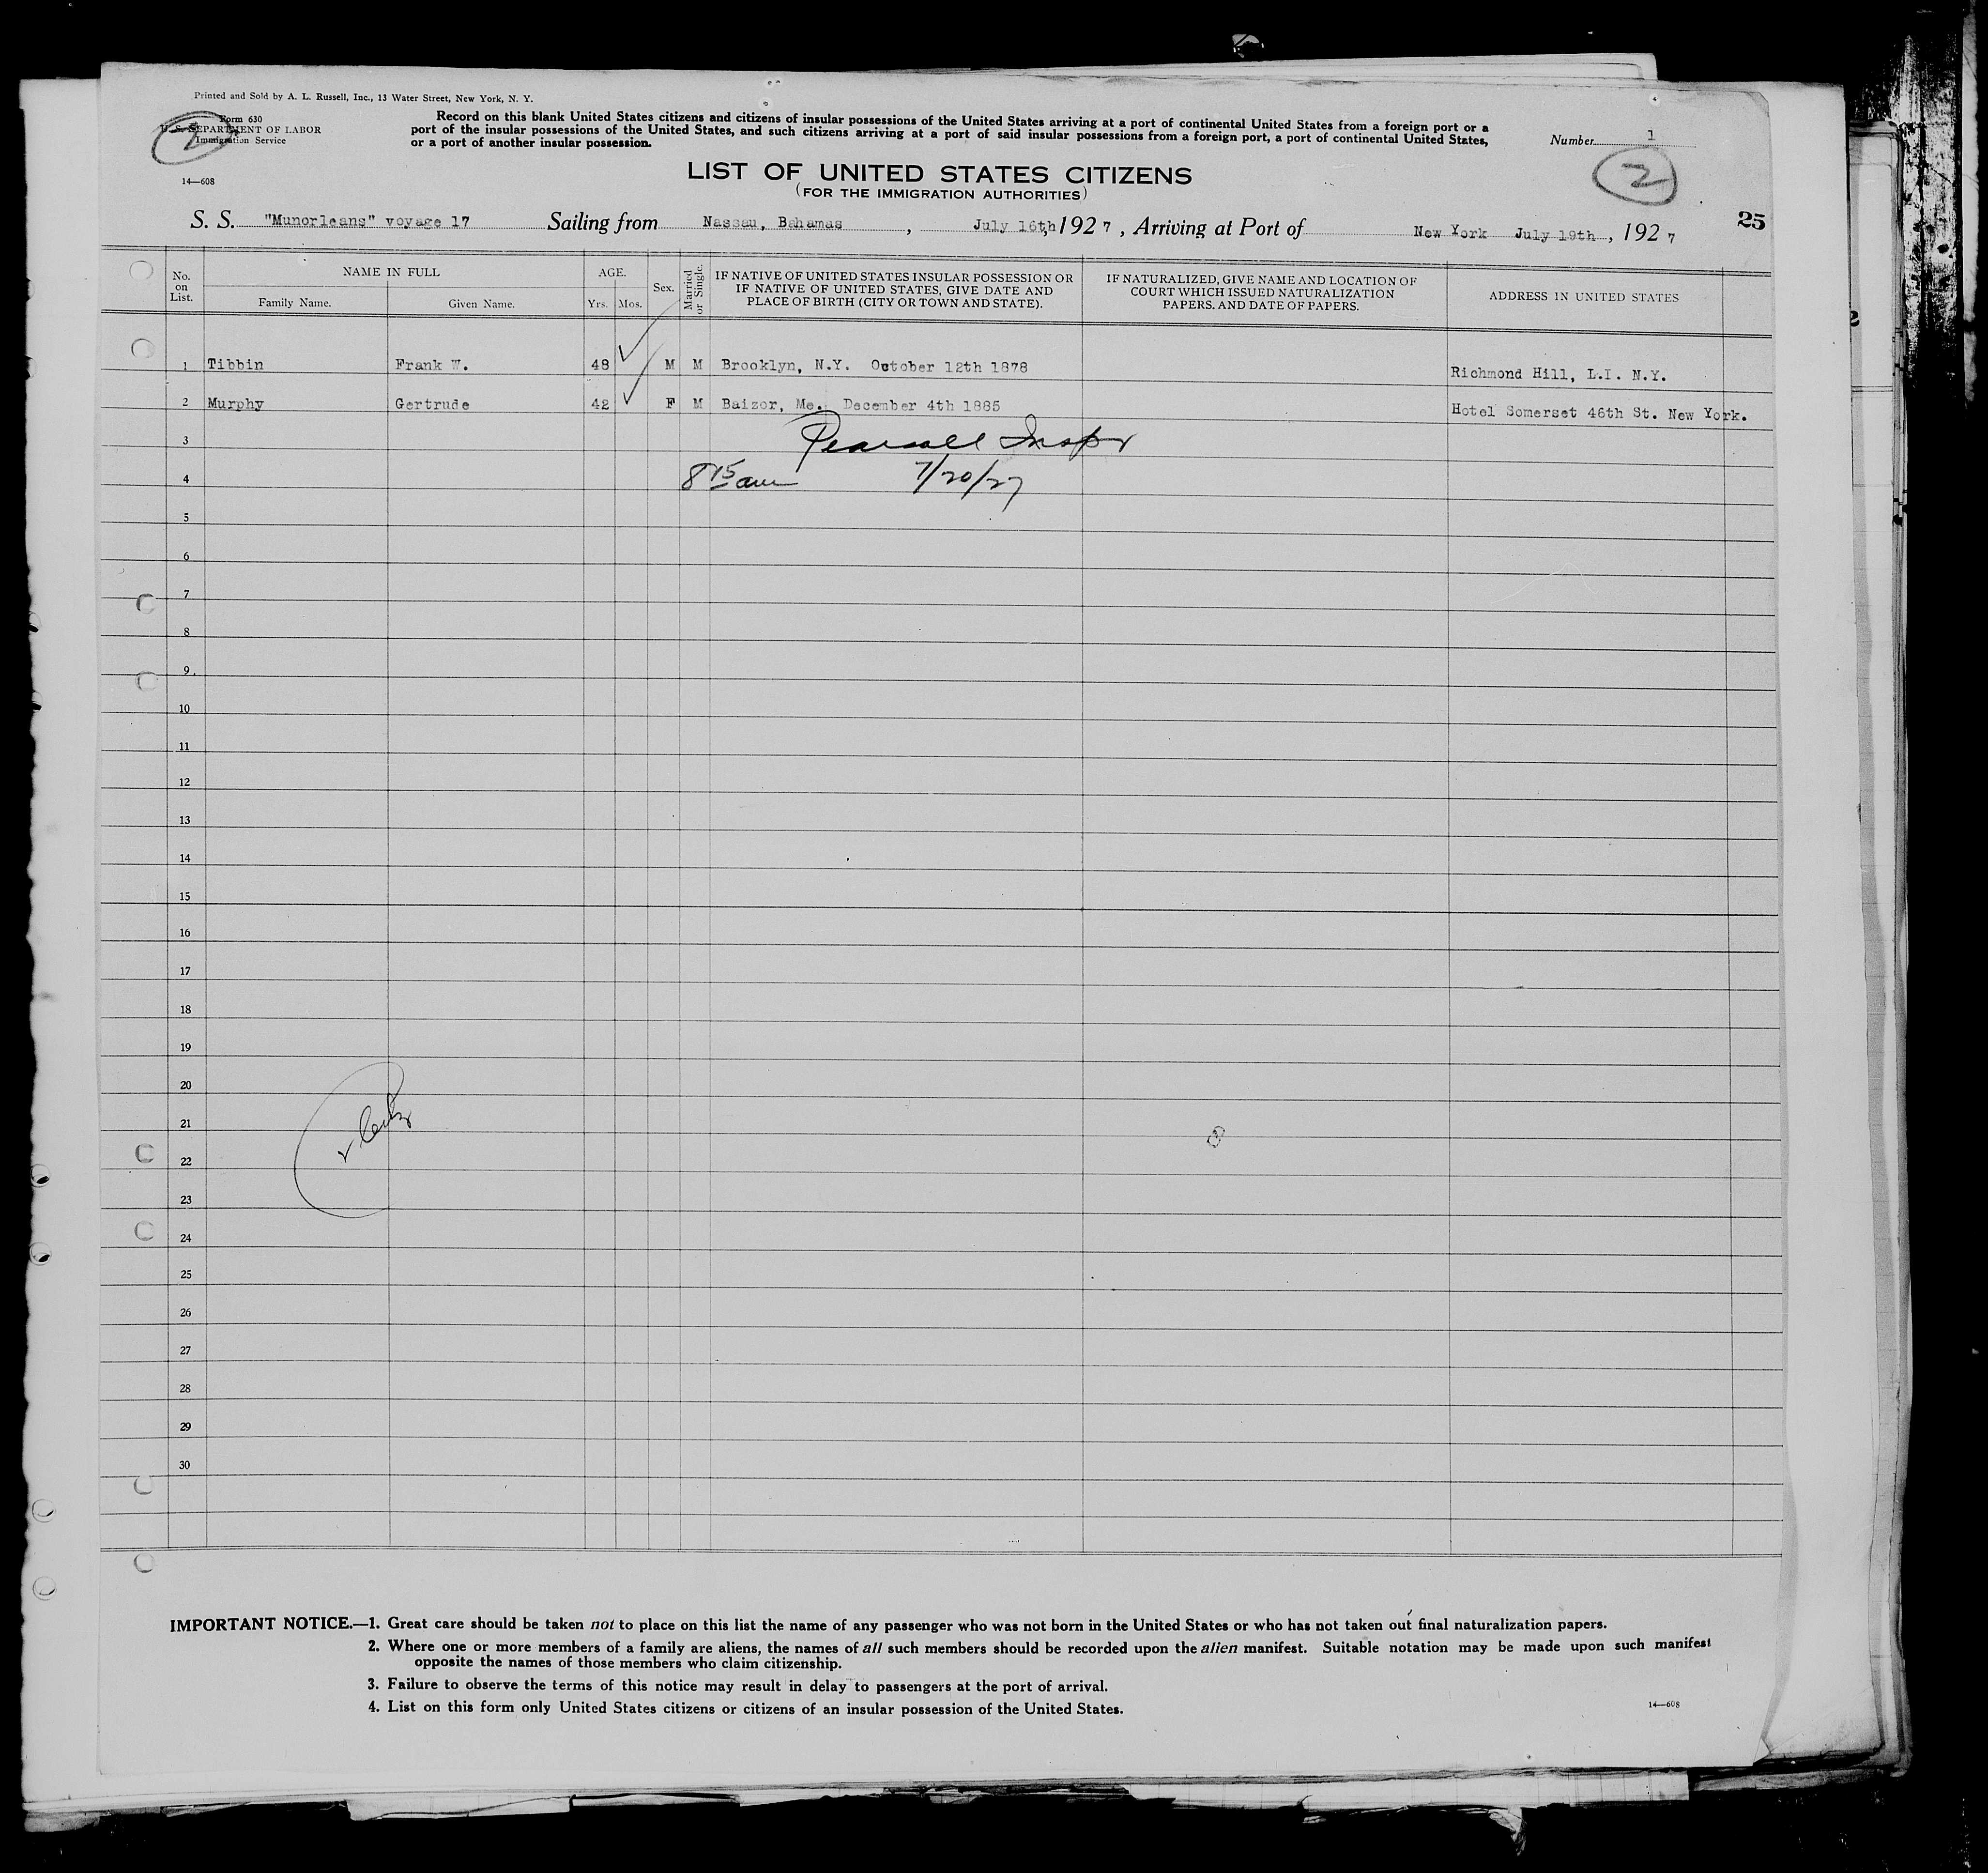 Printed and Sold by A. L. Russell, Inc., 13 Water Street, New York, N. Y.
Form 630
U. S. DEPARTMENT OF LABOR
Immigration Service
2
14—608
Record on this blank United States citizens and citizens of insular possessions of the United States arriving at a port of continental United States from a foreign port or a
port of the insular possessions of the United States, and such citizens arriving at a port of said insular possessions from a foreign port, a port of continental United States,
or a port of another insular possession.
Number 1
2
LIST OF UNITED STATES CITIZENS
(FOR THE IMMIGRATION AUTHORITIES)
S. S. "Munorleans" voyage 17 Sailing from Nassau, Bahamas, July 16th, 1927, Arriving at Port of New York July 19th, 1927
25
No. on List. NAME IN FULL AGE. Sex. Married or Single. IF NATIVE OF UNITED STATES INSULAR POSSESSION OR IF NATIVE OF UNITED STATES, GIVE DATE AND PLACE OF BIRTH (CITY OR TOWN AND STATE). IF NATURALIZED, GIVE NAME AND LOCATION OF COURT WHICH ISSUED NATURALIZATION PAPERS, AND DATE OF PAPERS. ADDRESS IN UNITED STATES
Family Name. Given Name. Yrs. Mos.
1 Tibbin Frank W. 48 M M Brooklyn, N.Y. October 12th 1878 Richmond Hill, L.I. N.Y.
2 Murphy Gertrude 42 F M Baizor, Me. December 4th 1885 Hotel Somerset 46th St. New York.
3 Pearsall Inspr
4 8 15 am 7/20/27
5
6
7
8
9
10
11
12
13
14
15
16
17
18
19
20
21
22
23
24
25
26
27
28
29
30
IMPORTANT NOTICE.—1. Great care should be taken not to place on this list the name of any passenger who was not born in the United States or who has not taken out final naturalization papers.
2. Where one or more members of a family are aliens, the names of all such members should be recorded upon the alien manifest. Suitable notation may be made upon such manifest
opposite the names of those members who claim citizenship.
3. Failure to observe the terms of this notice may result in delay to passengers at the port of arrival.
4. List on this form only United States citizens or citizens of an insular possession of the United States.
14—608